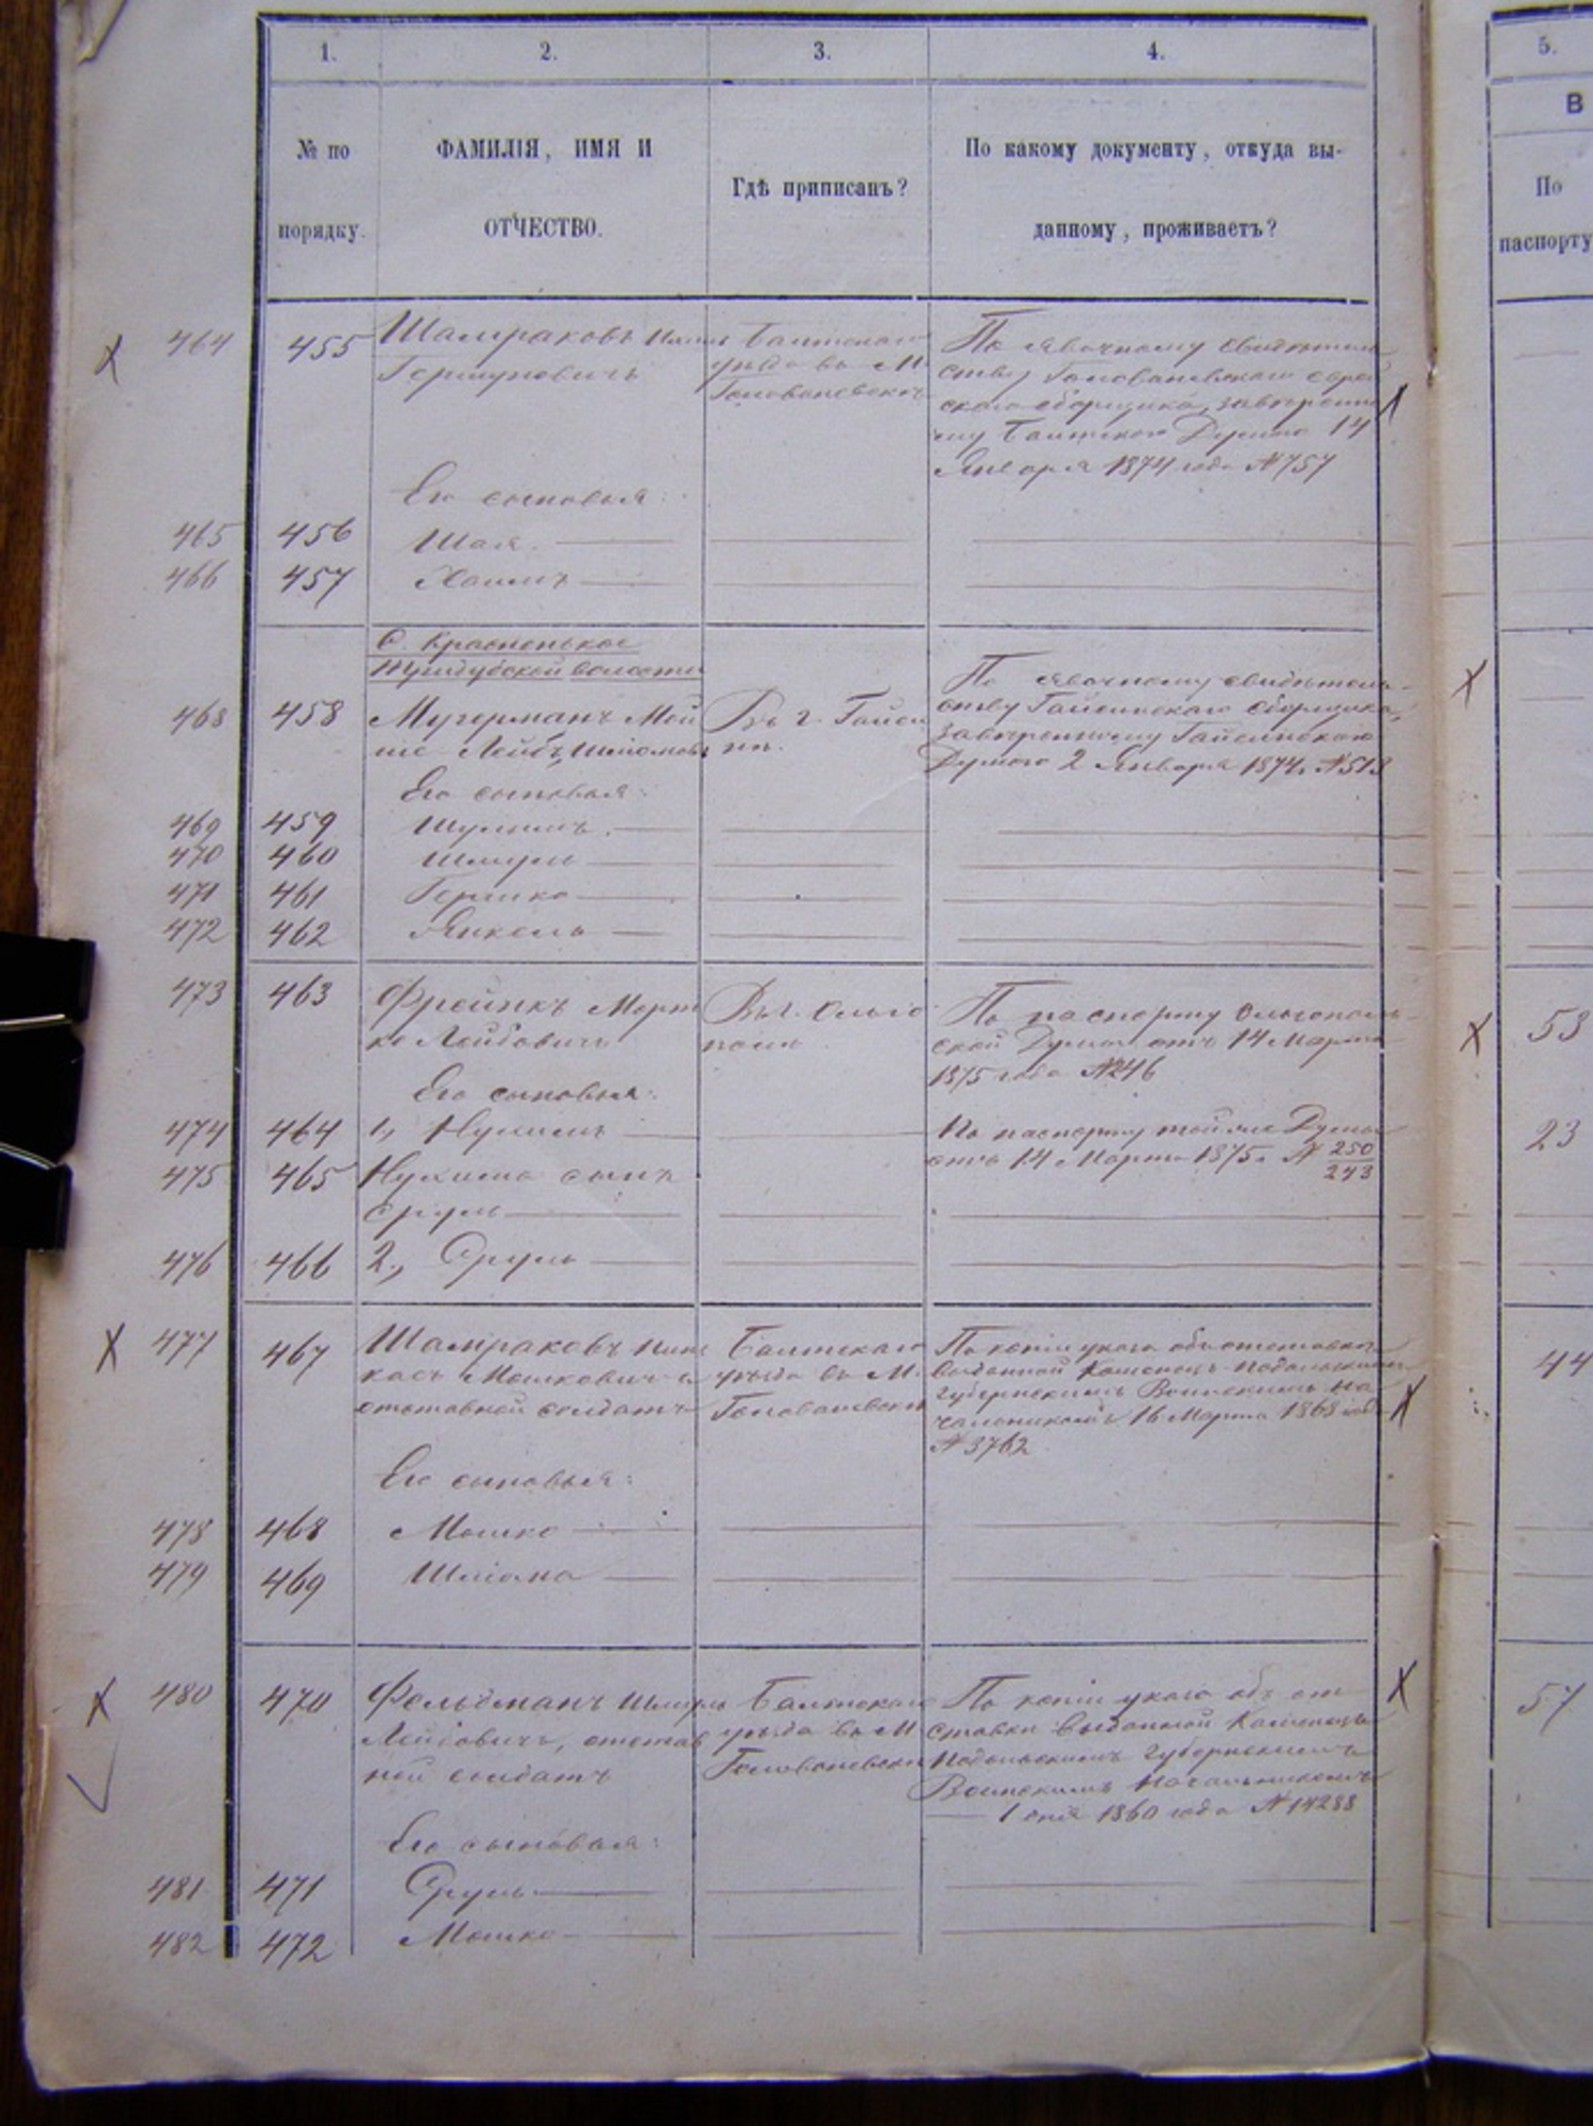 1. 2. 3. 4. 5.
№ по порядку.
ФАМИЛІЯ, ИМЯ И
ОТЧЕСТВО.
Гдѣ приписанъ?
По какому документу, откуда вы-
данному, проживаетъ?
В
По
паспорту
464 455 Шамраковъ Балтскаго По явочному свидѣтель
Гершуновичъ уѣзда въ М. ству Голованевскаго еврей
Голованевскѣ скаго сборщика, завѣренно
му Балтскою Думою 14
Января 1874 года №757
Его сыновья:
465 456 Шая.
466 457 Хаимъ
С. Красненькое
волости
468 458 Мугерманъ Мой Въ г. Гайси По явочному свидѣтель-
ше Лейбъ Шліомов нѣ. ству Гайсинскаго сборщика,
завѣренному Гайсинскою
Думою 2 Января 1874г №513
Его сыновья:
469 459 Шулимъ.
470 460 Шмуль
471 461 Гершко
472 462 Янкель
473 463 Фрейнкъ Морт Въ г. Ольго По паспорту Ольгополь-
ко Лейбовичъ полѣ ской Думы отъ 14 Марта
1875 года №246
53
Его сыновья:
474 464 1, Нухимъ По паспорту той же Думы
отъ 14 Марта 1875г № 250/243
23
475 465 Нухима сынъ
Сруль
476 466 2, Сруль
477 467 Шамраковъ Пин Балтскаго По копіи указа объ отставкѣ
касъ Мошковичъ уѣзда въ М. выданной Каменецъ-Подольскимъ
отставной солдатъ Голованевскѣ Губернскимъ Воинскимъ На
чальникомъ 16 Марта 1868 года
№3762
44
Его сыновья:
478 468 Мошко
479 469 Шліома
480 470 Фельдманъ Шмуль Балтскаго По копіи указа объ от
Лейбовичъ, отстав уѣзда въ М. ставкѣ выданной Каменецъ
ной солдатъ Голованевскѣ Подольскимъ Губернскимъ
Воинскимъ Начальникомъ
1860 года №14288
57
Его сыновья:
481 471 Сруль
482 472 Мошко